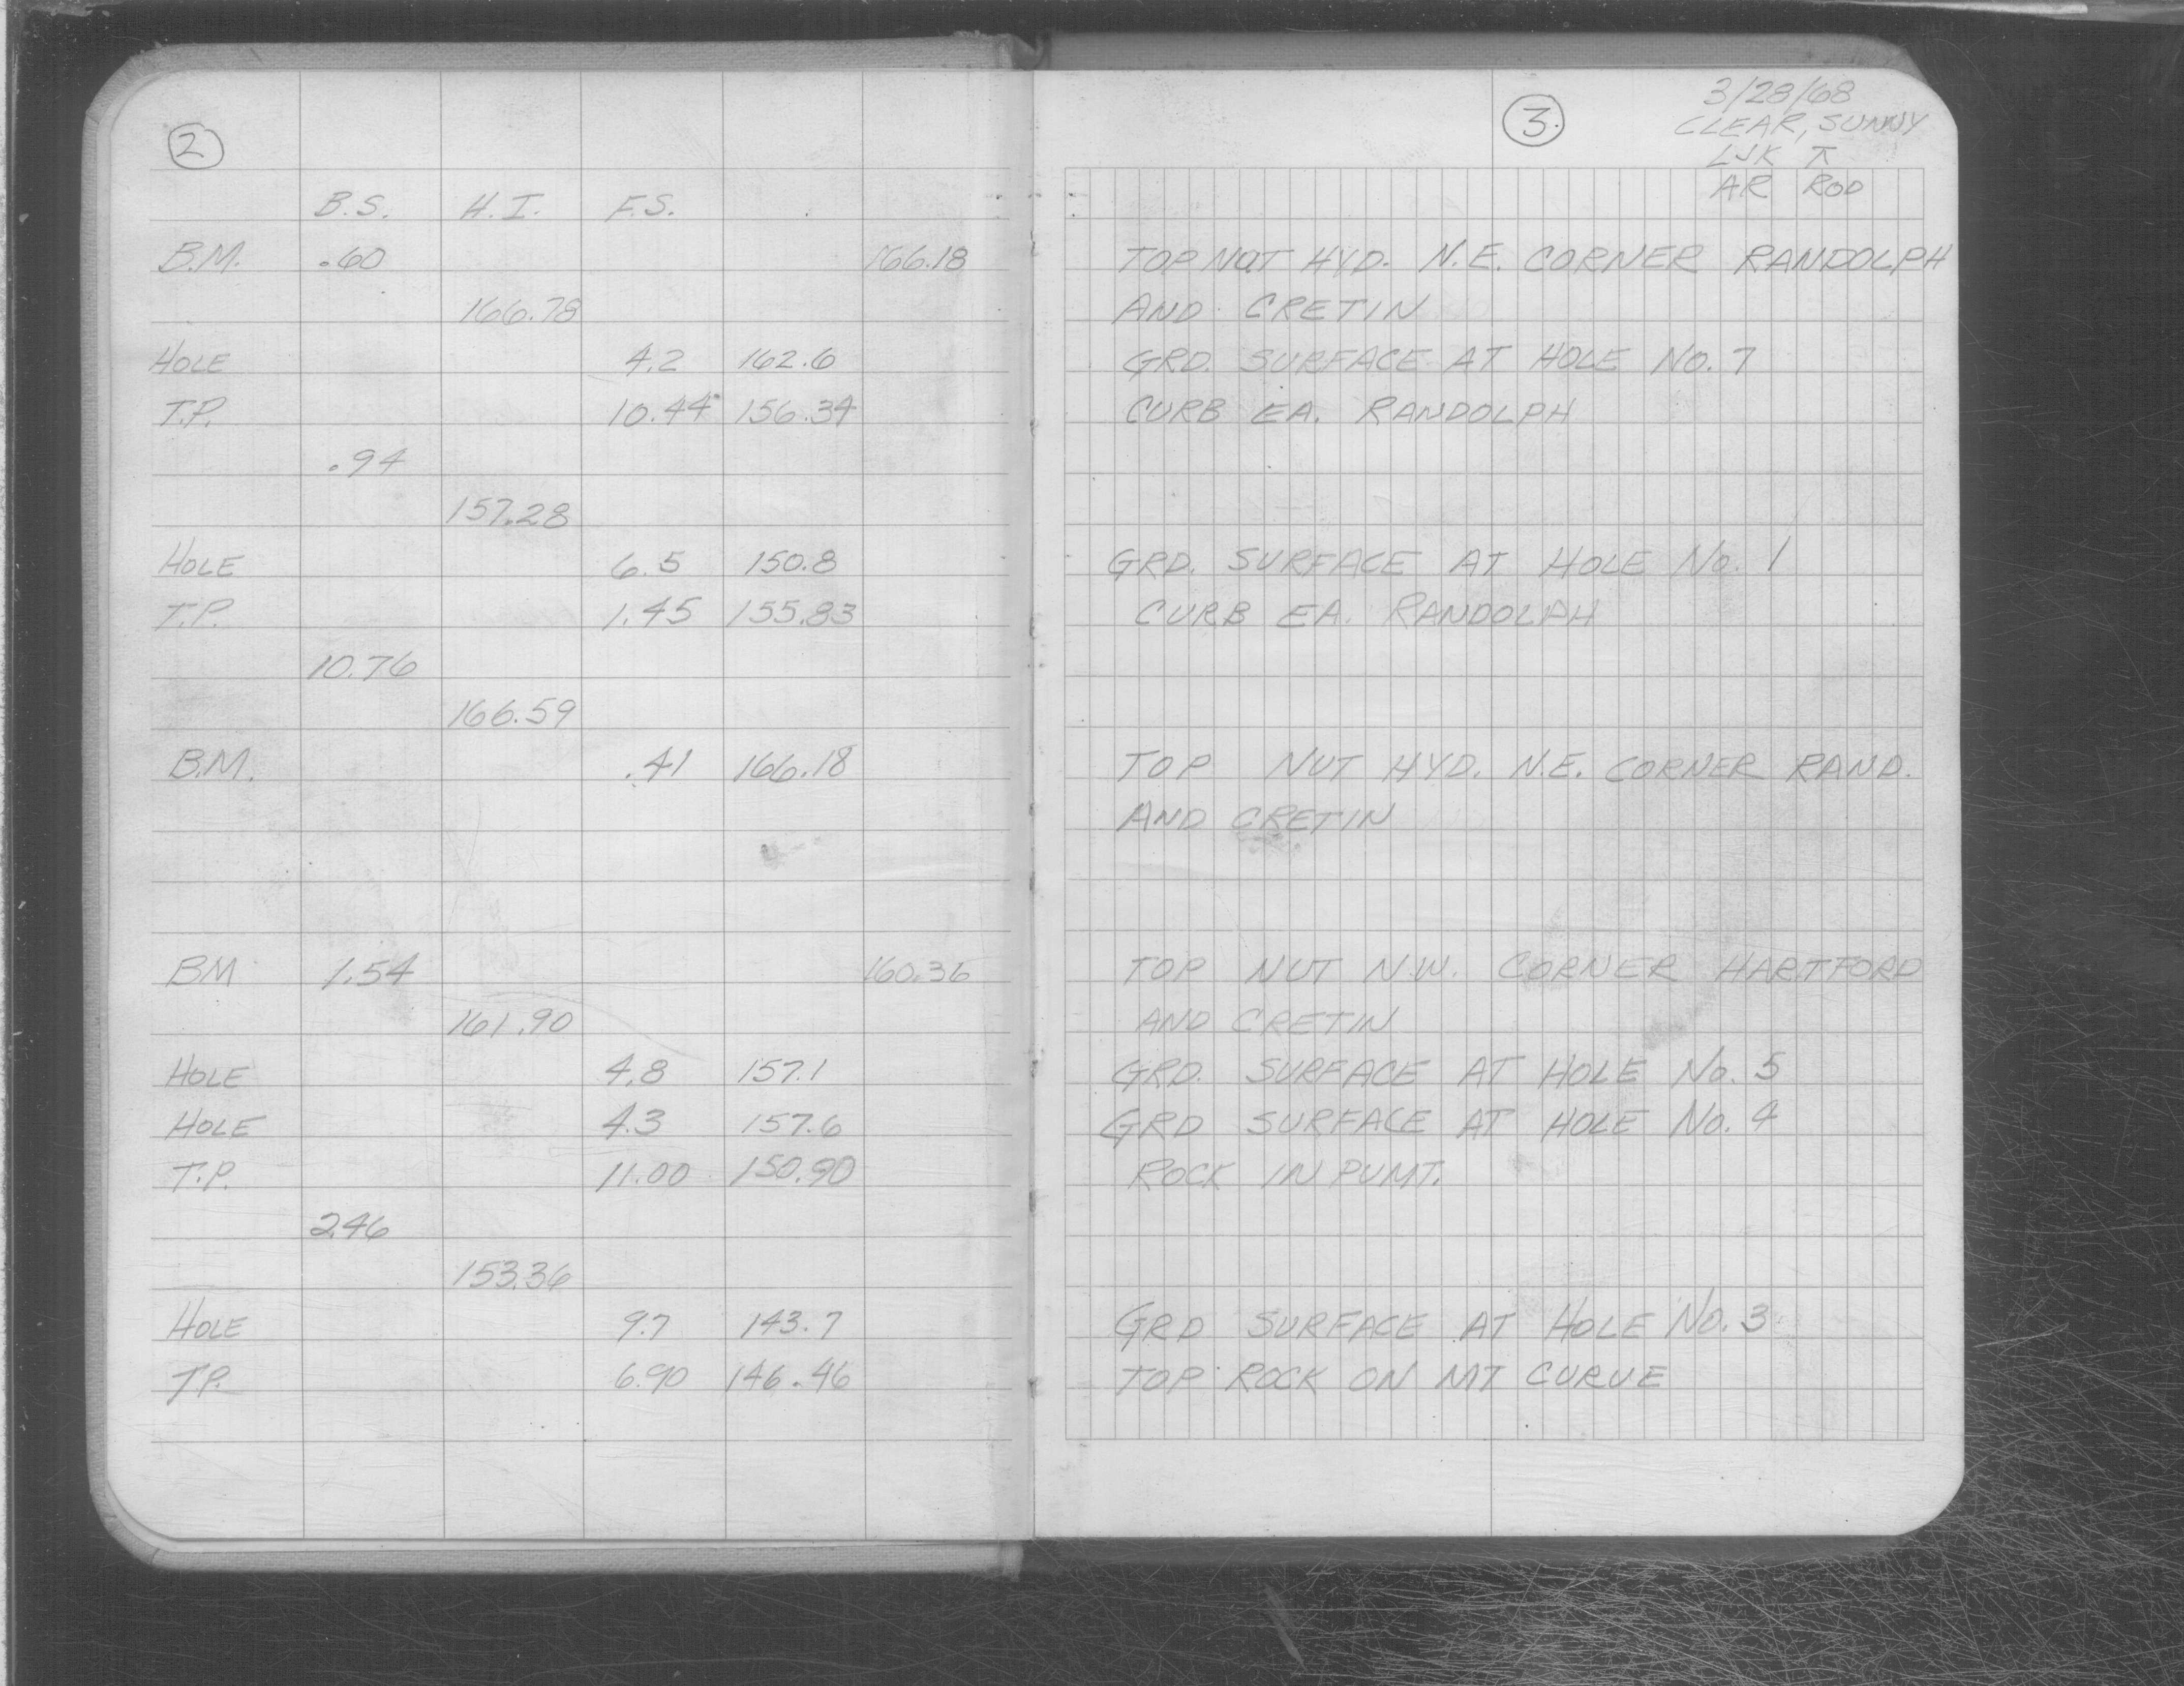 2
B.S. H.I. F.S.
B.M. .60 166.18
166.78
HOLE 4.2 162.6
T.P. 10.44 156.34
.94
157.28
HOLE 6.5 150.8
T.P. 1.45 155.83
10.76
166.59
B.M. .41 166.18
BM 1.54 160.36
161.90
HOLE 4.8 157.1
HOLE 4.3 157.6
T.P. 11.00 150.90
2.46
153.36
HOLE 9.7 143.7
T.P. 6.90 146.46
3.
3/28/68
CLEAR, SUNNY
LJK ⊼
AR ROD
TOP NUT HYD. N.E. CORNER RANDOLPH
AND CRETIN
GRD. SURFACE AT HOLE NO. 7
CURB EA. RANDOLPH
GRD. SURFACE AT HOLE NO. 1
CURB EA. RANDOLPH
TOP NUT HYD. N.E. CORNER RAND.
AND CRETIN
TOP NUT N.W. CORNER HARTFORD
AND CRETIN
GRD. SURFACE AT HOLE NO. 5
GRD SURFACE AT HOLE NO. 4
ROCK IN PVMT.
GRD SURFACE AT HOLE NO. 3
TOP ROCK ON MT CURVE